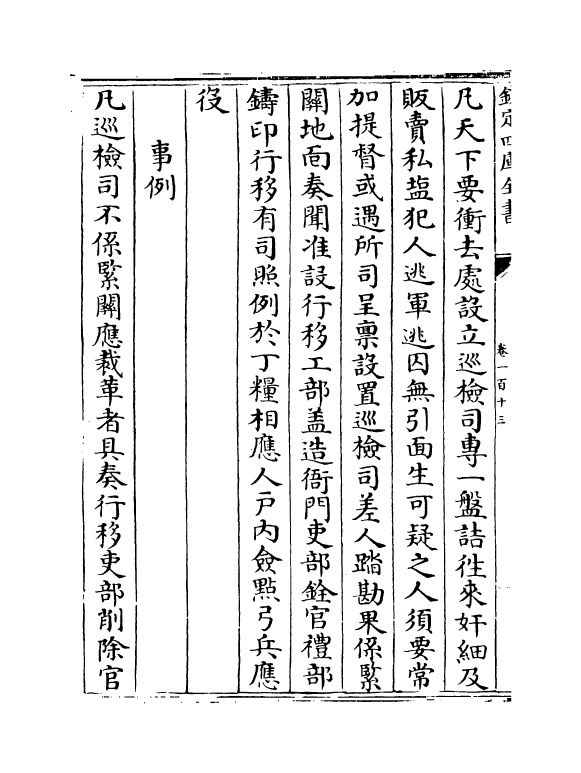 欽定四庫全書
卷一百十三
凡天下要衝去處設立巡檢司專一盤詰徃來奸細及
販賣私塩犯人逃軍逃囚無引面生可疑之人須要常
加提督或遇所司呈禀設置巡檢司差人踏勘果係緊
關地面奏聞准設行移工部盖造衙門吏部銓官禮部
鑄印行移有司照例於丁糧相應人戸内僉㸃弓兵應
役
事例
凡巡檢司不係緊關應裁革者具奏行移吏部削除官